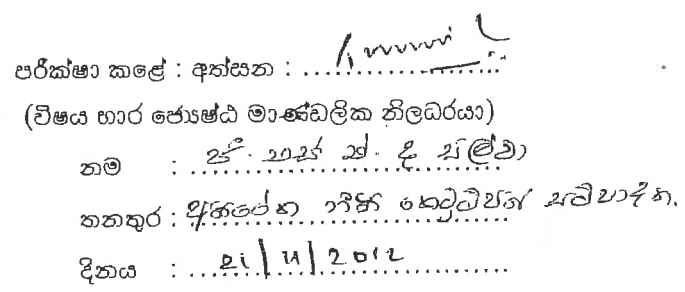 පරීක්ෂා කළේ : අත්සන : ....................
(විෂය භාර ජ්‍යෙෂ්ඨ මාණ්ඩලික නිලධරයා)
නම : ද සිල්වා
තනතුර : නීති කෙටුම්පත් සම්පාදක.
දිනය : 21/11/2012